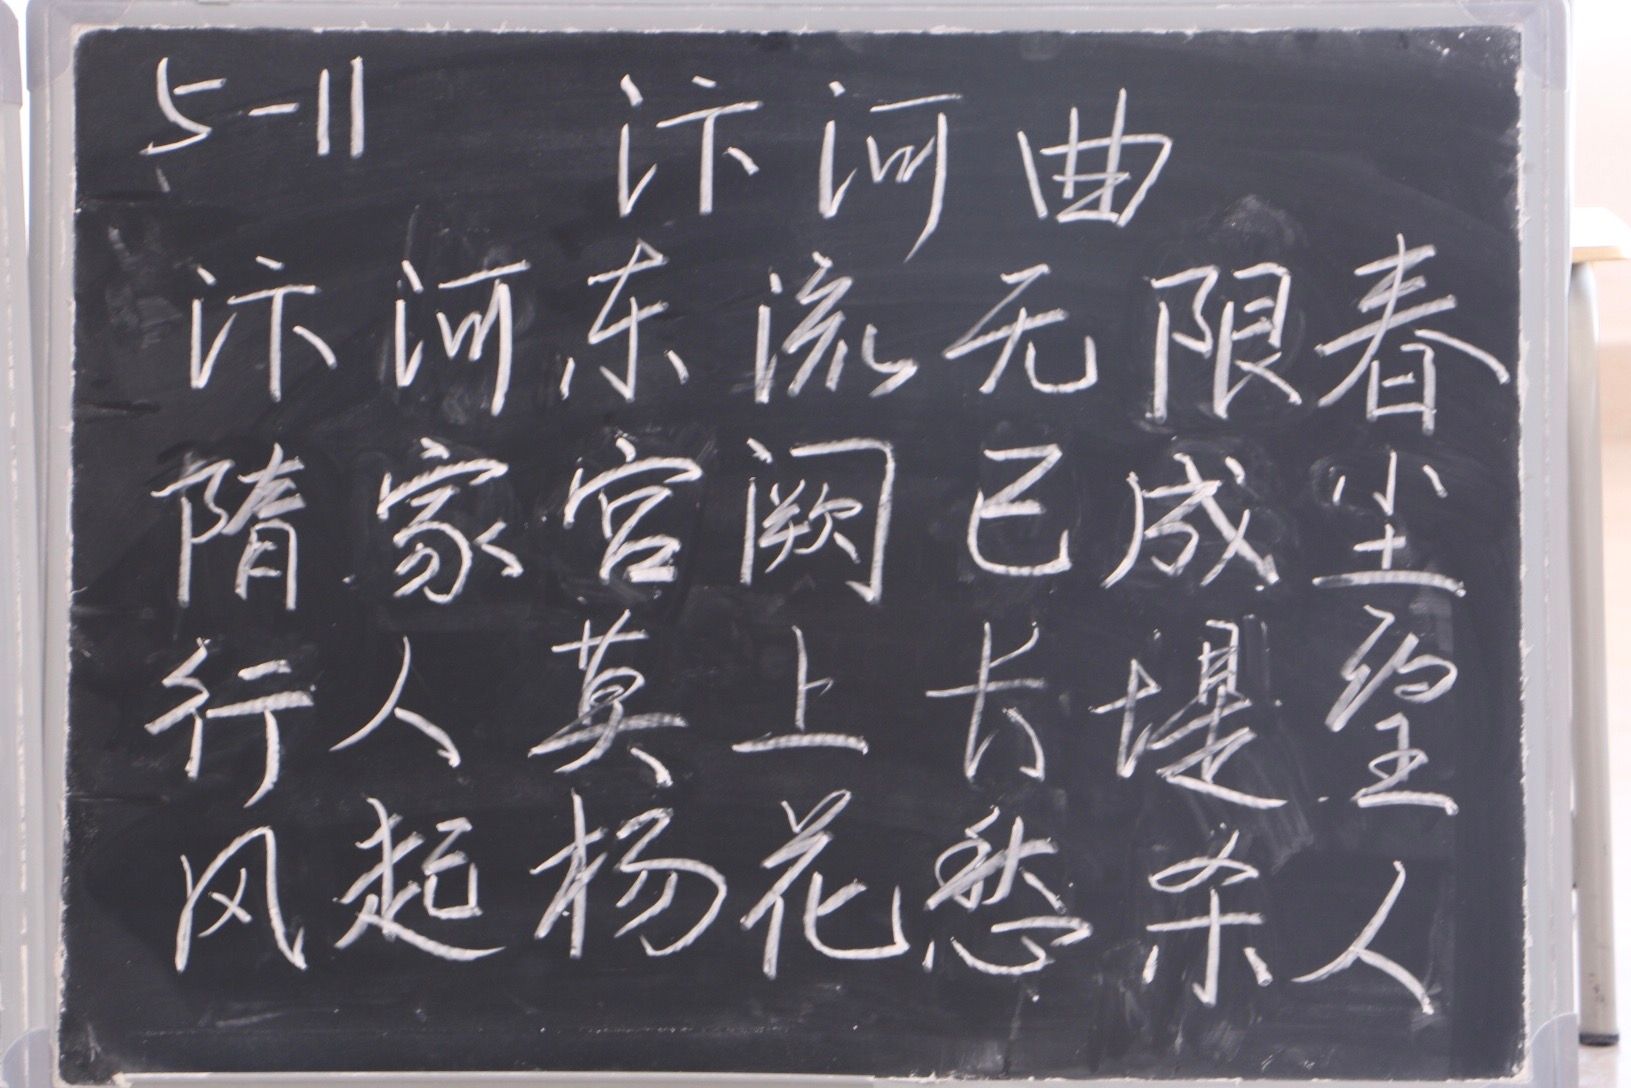 5-11
汴河曲
汴河东流无限春
隋家宫阙已成尘
行人莫上长堤望
风起杨花愁杀人